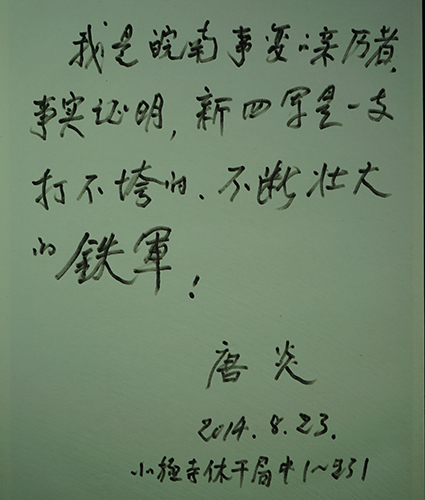 我是皖南事变亲历者,
事实证明,新四军是一支
打不垮的、不断壮大
的鉄軍!
唐炎
2014.8.23.
小 寺休干局中1~231